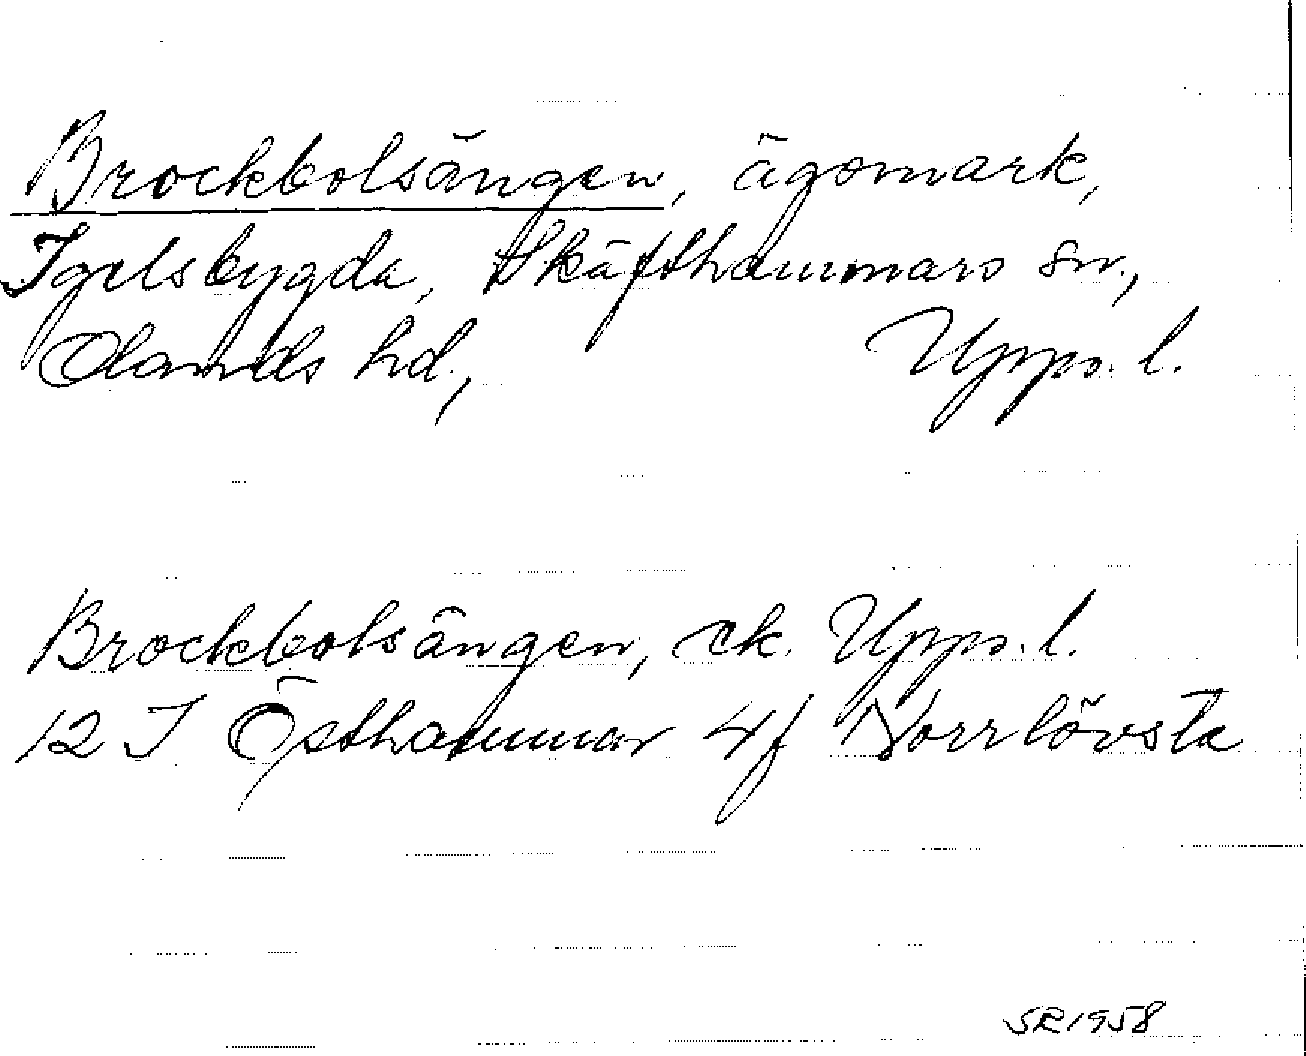 Brockbolsängen, ägomark,
Igelsbygda, Skäfthammars sn.,
Olands hd., Upps. l.
Brockbolsängen, ek. Upps. l.
12 I Östhammar 4f Norrlövsta
SR 1958